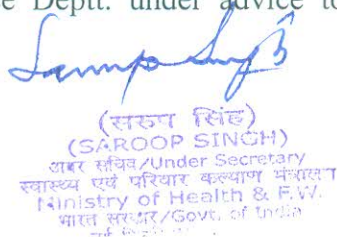 e Deptt. under advice to
(सरुप सिंह)
(SAROOP SINGH)
अवर सचिव/Under Secretary
स्वास्थ्य एवं परिवार कल्याण मंत्रालय
Ministry of Health & F.W.
भारत सरकार/Govt. of India